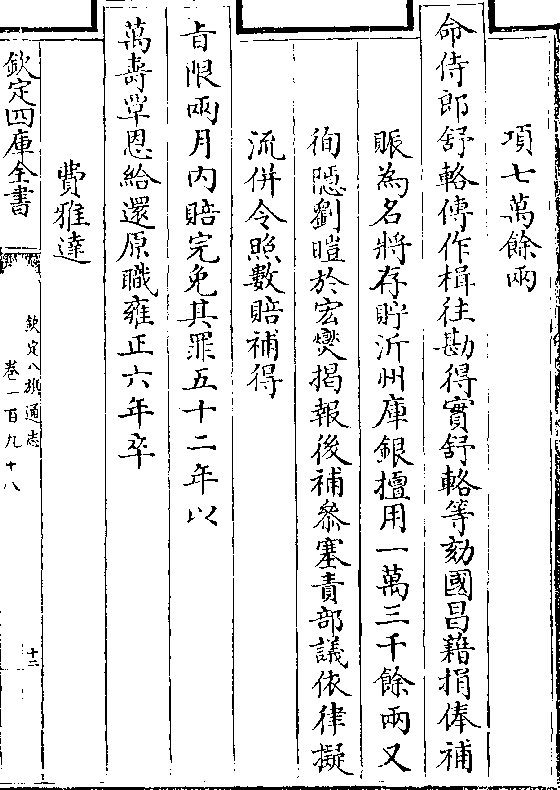 項七萬餘兩
命侍郎舒輅傅作楫往勘得實舒輅等劾國昌藉捐俸補
賑為名將存貯沂州庫銀擅用一萬三千餘兩又
徇隱劉暟於宏爕揭報後補叅塞責部議依律擬
流併令照數賠補得
旨限兩月內賠完免其罪五十二年以
萬壽覃恩給還原職雍正六年卒
費雅達
欽定四庫全書
欽定八旗通志
卷一百九十八
十二